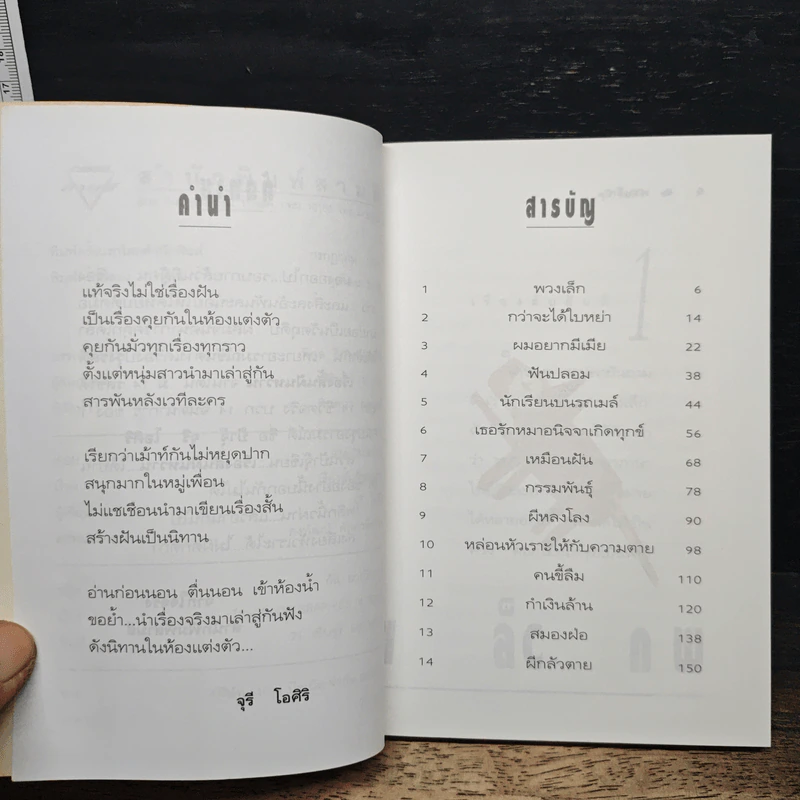 คำนำ
แท้จริงไม่ใช่เรื่องฝัน
เป็นเรื่องคุยกันในห้องแต่งตัว
คุยกันมั่วทุกเรื่องทุกราว
ตั้งแต่หนุ่มสาวนำมาเล่าสู่กัน
สารพันหลังเวทีละคร
เรียกว่าเม้าท์กันไม่หยุดปาก
สนุกมากในหมู่เพื่อน
ไม่แชเชือนนำมาเขียนเรื่องสั้น
สร้างฝันเป็นนิทาน
อ่านก่อนนอน ตื่นนอน เข้าห้องน้ำ
ขอย้ำ...นำเรื่องจริงมาเล่าสู่กันฟัง
ดังนิทานในห้องแต่งตัว...
จุรี โอศิริ
สารบัญ
1 พวงเล็ก 6
2 กว่าจะได้ใบหย่า 14
3 ผมอยากมีเมีย 22
4 ฟันปลอม 38
5 นักเรียนบนรถเมล์ 44
6 เธอรักหมาอนิจจาเกิดทุกข์ 56
7 เหมือนฝัน 68
8 กรรมพันธุ์ 78
9 ผีหลงโลง 90
10 หล่อนหัวเราะให้กับความตาย 98
11 คนขี้ลืม 110
12 กำเงินล้าน 120
13 สมองฝ่อ 138
14 ผีกลัวตาย 150
16
17